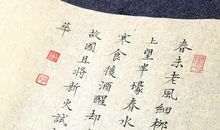 春未老風細柳
上望半壕春水
寒食後酒醒却
故國且將新火試
華